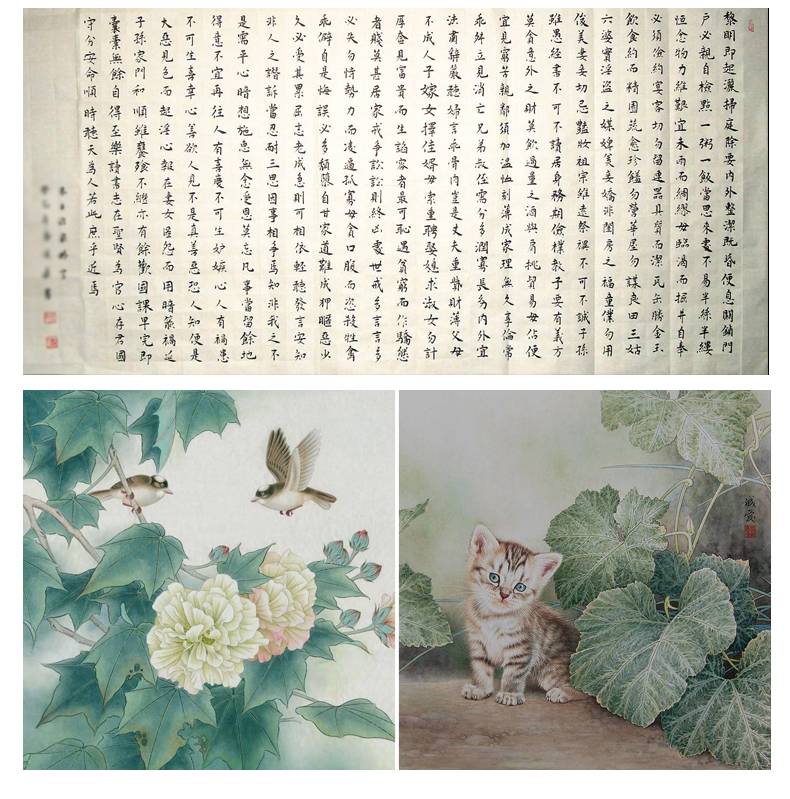 黎明即起灑掃庭除要內外整潔既昏便息關鎖門
戶必親自檢點一粥一飯當思來處不易半絲半縷
恒念物力維艱宜未雨而綢繆毋臨渴而掘井自奉
必須儉約宴客切勿留連器具質而潔瓦缶勝金玉
飲食約而精園蔬愈珍饈勿營華屋勿謀良田三姑
六婆實淫盜之媒婢美妾嬌非閨房之福童僕勿用
俊美妻妾切忌豔妝祖宗雖遠祭祀不可不誠子孫
雖愚經書不可不讀居身務期儉樸教子要有義方
莫貪意外之財莫飲過量之酒與肩挑貿易毋佔便
宜見窮苦親鄰須加溫恤刻薄成家理無久享倫常
乖舛立見消亡兄弟叔侄需分多潤寡長幼內外宜
法肅辭嚴聽婦言乖骨肉豈是丈夫重貲財薄父母
不成人子嫁女擇佳婿毋索重聘娶媳求淑女勿計
厚奩見富貴而生諂容者最可恥遇貧窮而作驕態
者賤莫甚居家戒爭訟訟則終凶處世戒多言言多
必失勿恃勢力而凌逼孤寡毋貪口腹而恣殺牲禽
乖僻自是悔誤必多頹隳自甘家道難成狎暱惡少
久必受其累屈志老成急則可相依輕聽發言安知
非人之譖訴當忍耐三思因事相爭焉知非我之不
是需平心暗想施惠無念受恩莫忘凡事當留餘地
得意不宜再往人有喜慶不可生妒嫉心人有禍患
不可生喜幸心善欲人見不是真善惡恐人知便是
大惡見色而起淫心報在妻女匿怨而用暗箭禍延
子孫家門和順雖饔飧不繼亦有餘歡國課早完即
囊橐無餘自得至樂讀書志在聖賢為官心存君國
守分安命順時聽天為人若此庶乎近焉
朱子治家格言